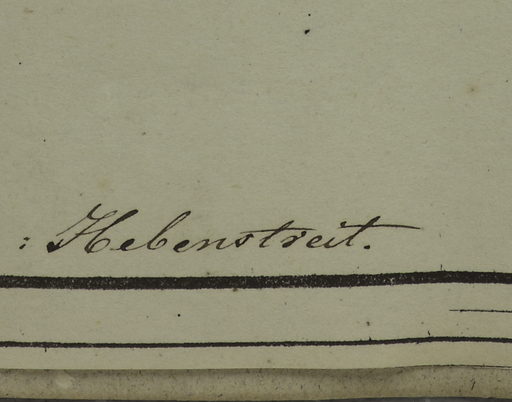 : Hebenstreit.